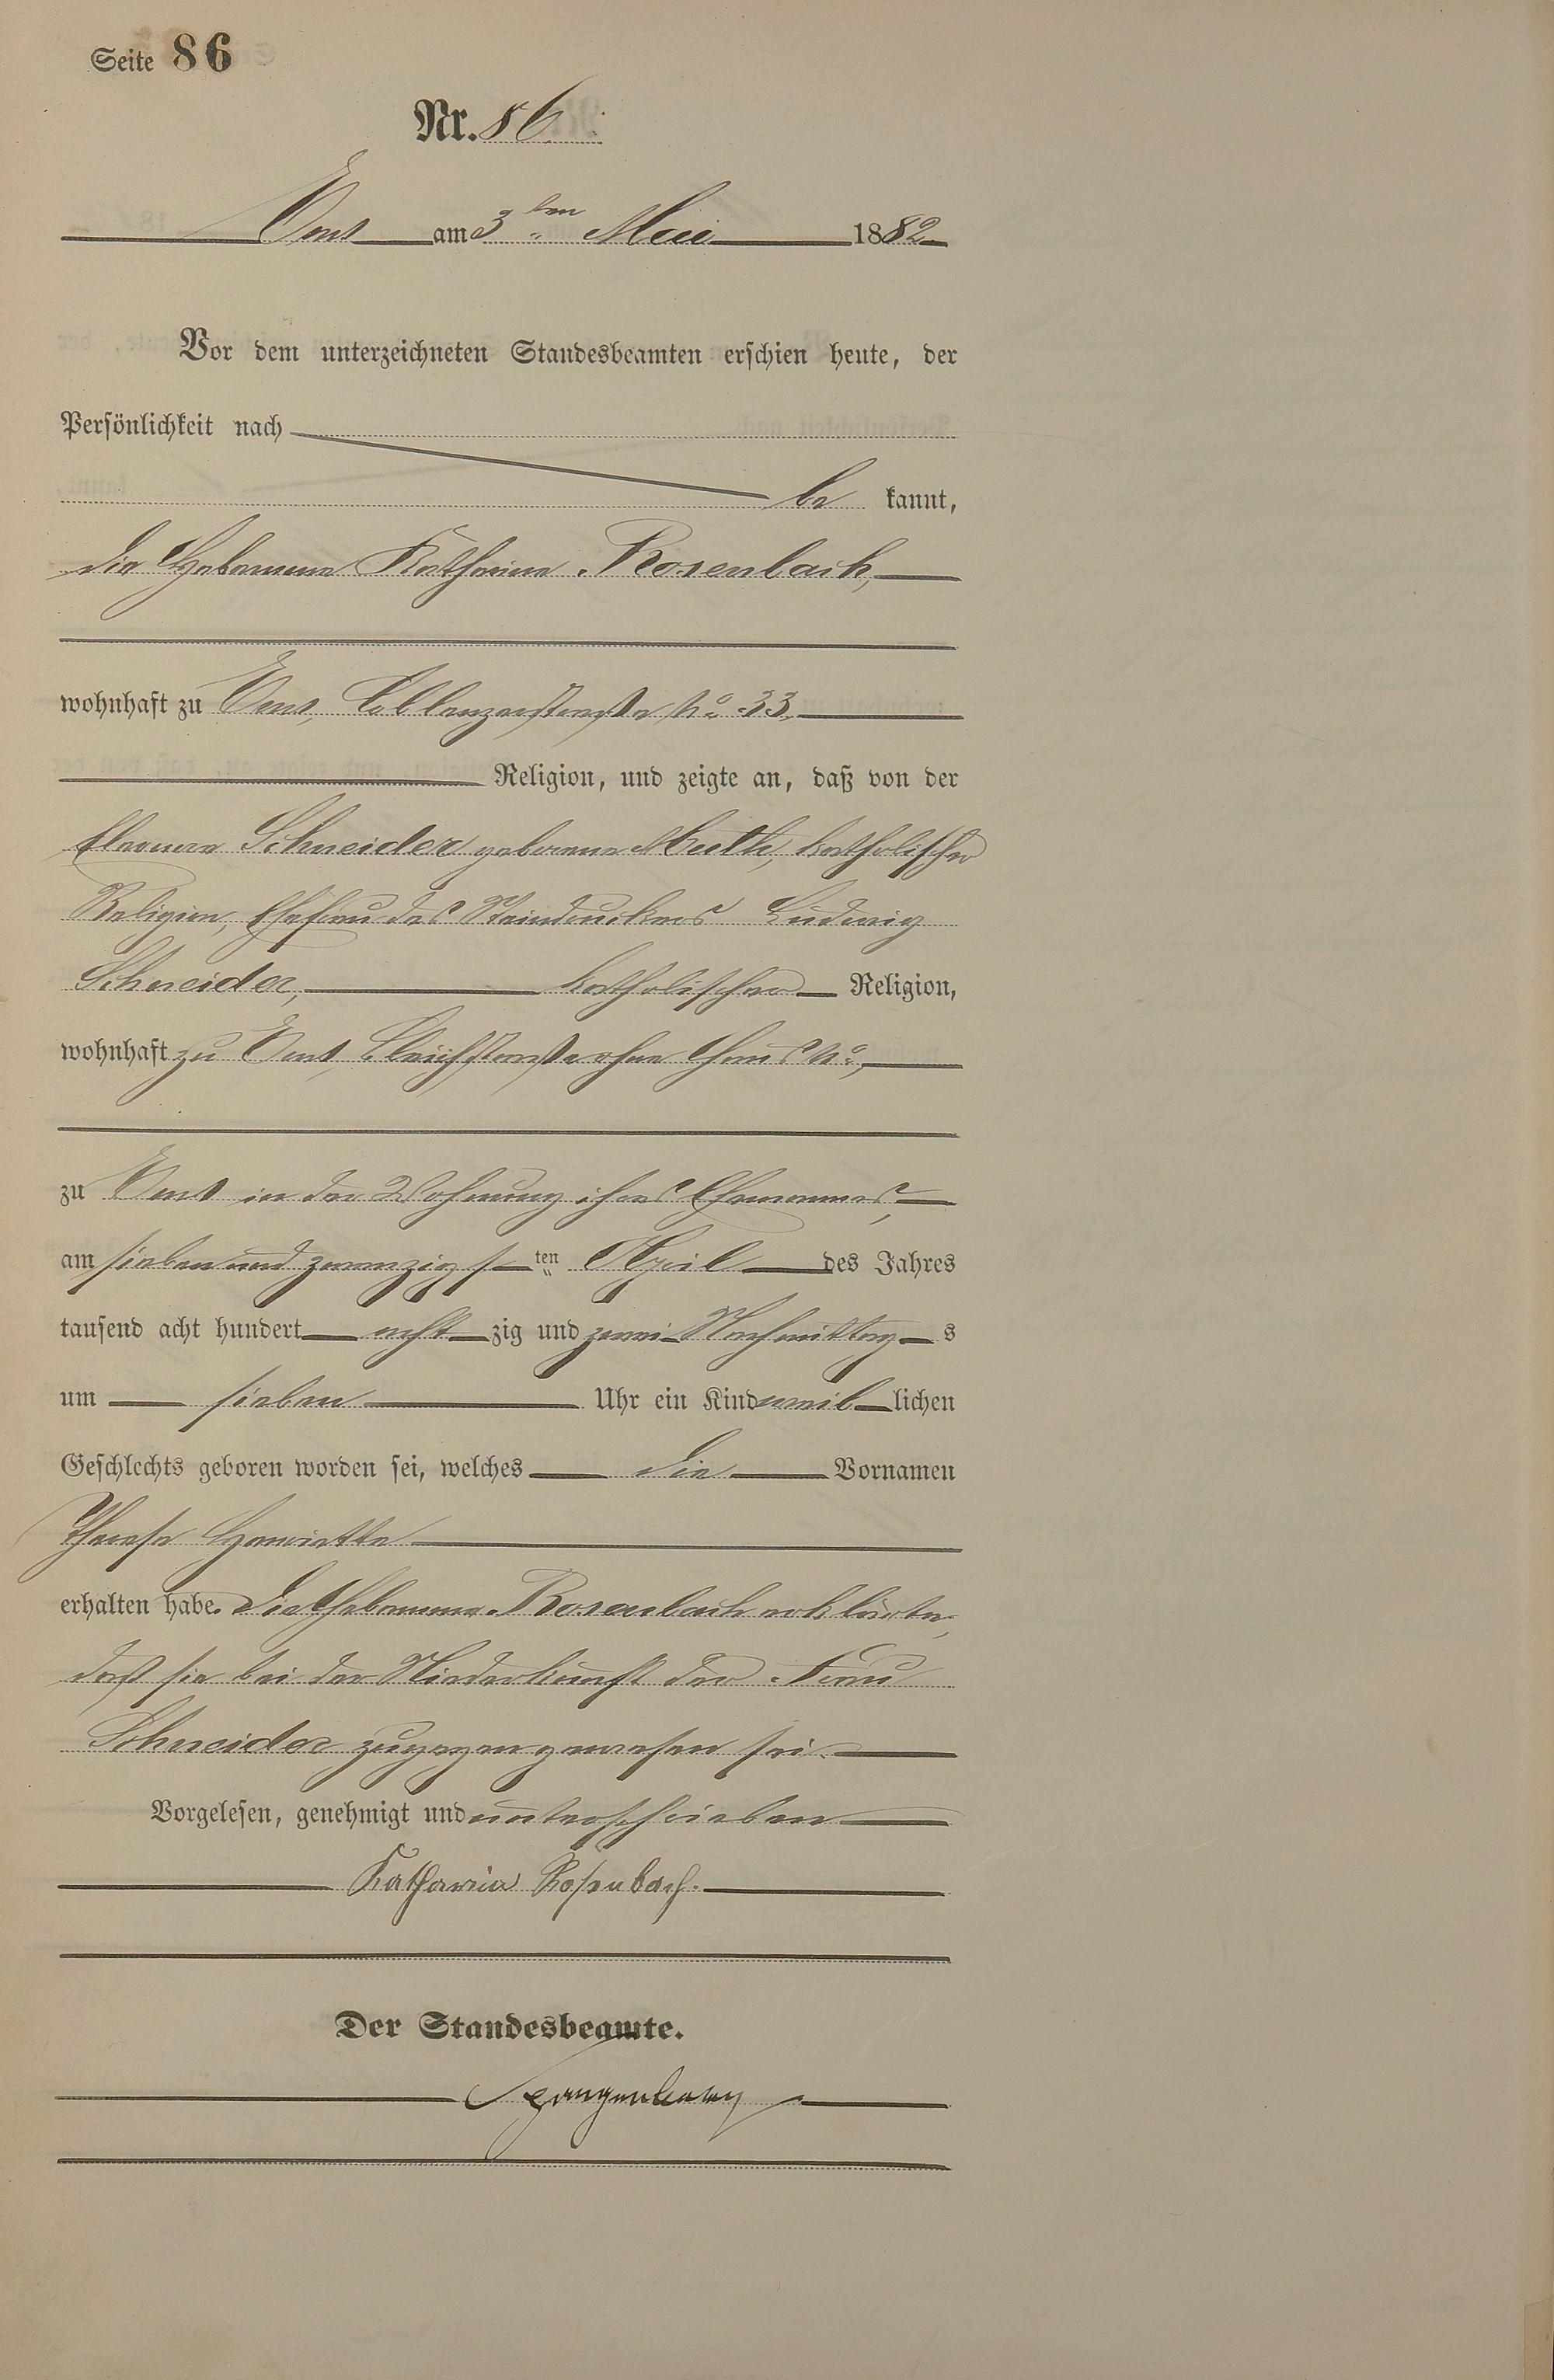 Seite 86
Nr. 86.
Ems am 3ten Mai 1882
Vor dem unterzeichneten Standesbeamten erschien heute, der
Persönlichkeit nach
be kannt,
die Hebamme Katharina Rosenbach,
wohnhaft zu Ems, Coblenzerstraße No 33,
Religion, und zeigte an, daß von der
Schneider geborene Muth, katholischer
Religion, Ehefrau des Steindruckers Ludwig
Schneider, katholischer Religion,
wohnhaft zu Ems, Bleichstraße ohne Haus No,
zu Ems in der Wohnung ihres Ehemannes,
am sieben und zwanzigsten April des Jahres
tausend acht hundert achtzig und zwei Nachmittags
um sieben Uhr ein Kind weiblichen
Geschlechts geboren worden sei, welches die Vornamen
Therese Henriette
erhalten habe. Die Hebamme Rosenbach erklärte,
daß sie bei der Niederkunft der Frau
Schneider zugegen gewesen sei.
Vorgelesen, genehmigt und unterschrieben
Katharina Rosenbach.
Der Standesbeamte.
Spangenberg